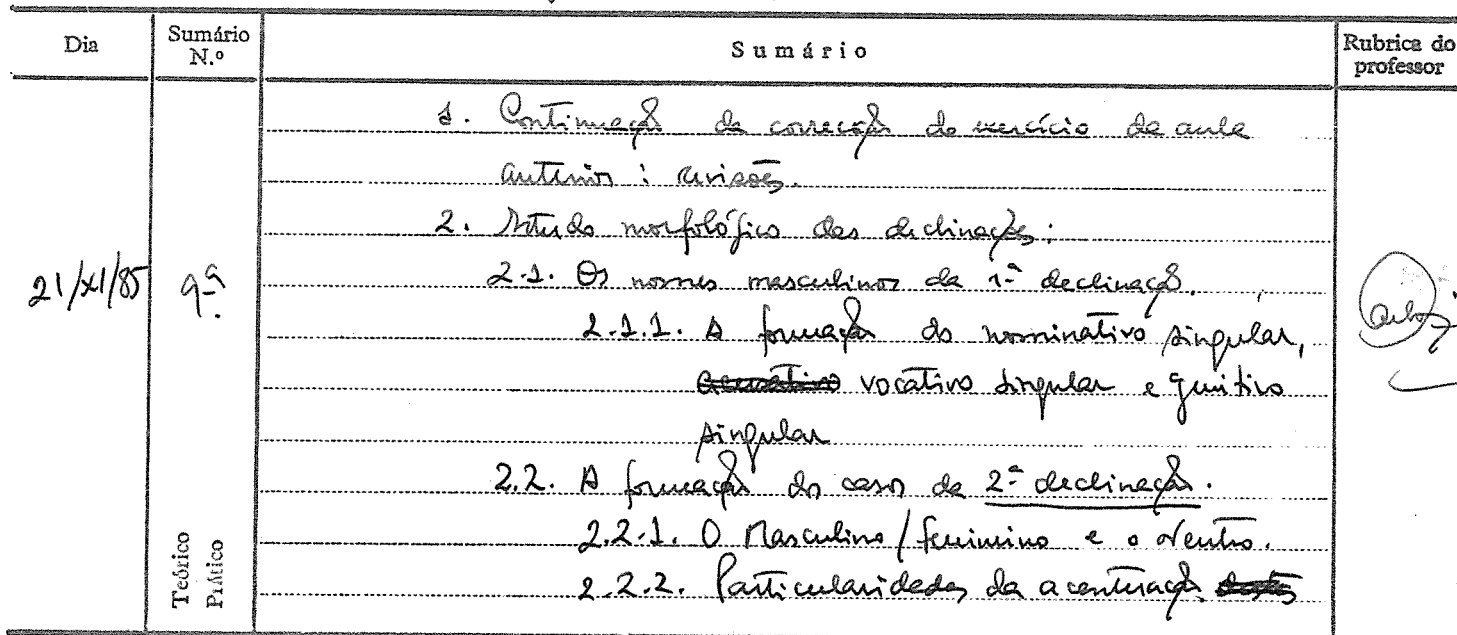 Dia Sumário N.º Sumário Rubrica do professor
1. Continuação da correcção do exercício da aula
anterior: revisões.
2. Estudo morfológico das declinações:
21/XI/85 9ª. 2.1. Os nomes masculinos da 1ª declinação.
2.1.1. A formação do nominativo singular,
vocativo singular e genitivo
singular
2.2. A formação dos casos da 2ª declinação.
2.2.1. O Masculino/feminino e o Neutro.
2.2.2. Particularidades da acentuação
Teórico
Prático